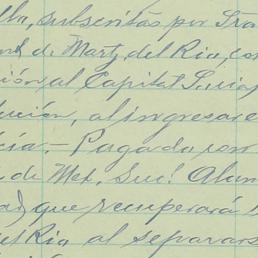 lla, subscritas por Fra
de Martz del Rio, con
ción al Capital Social
ción, al ingresar e
cía,- Pagada con
de Met. Suc! Alon
que recuperará s
del Rio al separars